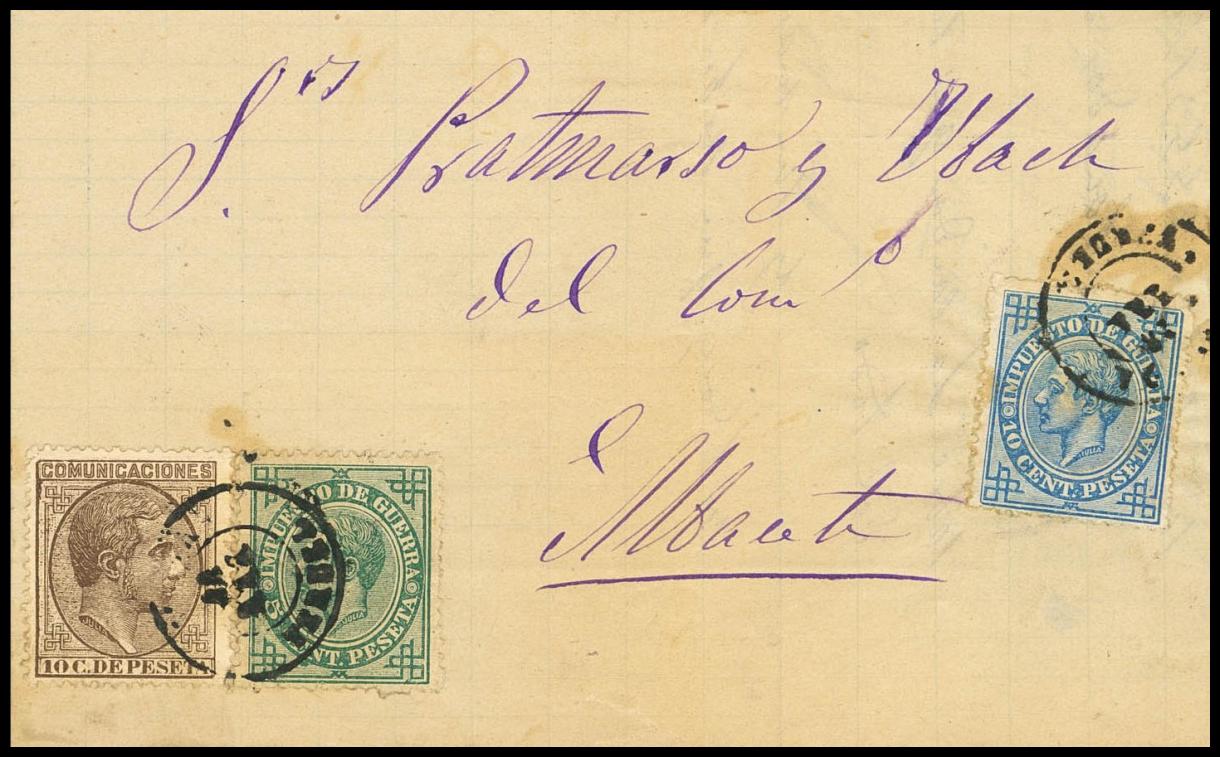 S.rs Pratmarso y Ubach
del Com.o
Albacete
IMPUESTO DE GUERRA
10 CENT. PESETA
JULIA
COMUNICACIONES
10 C. DE PESETA
IMPUESTO DE GUERRA
5 CENT. PESETA
JULIA